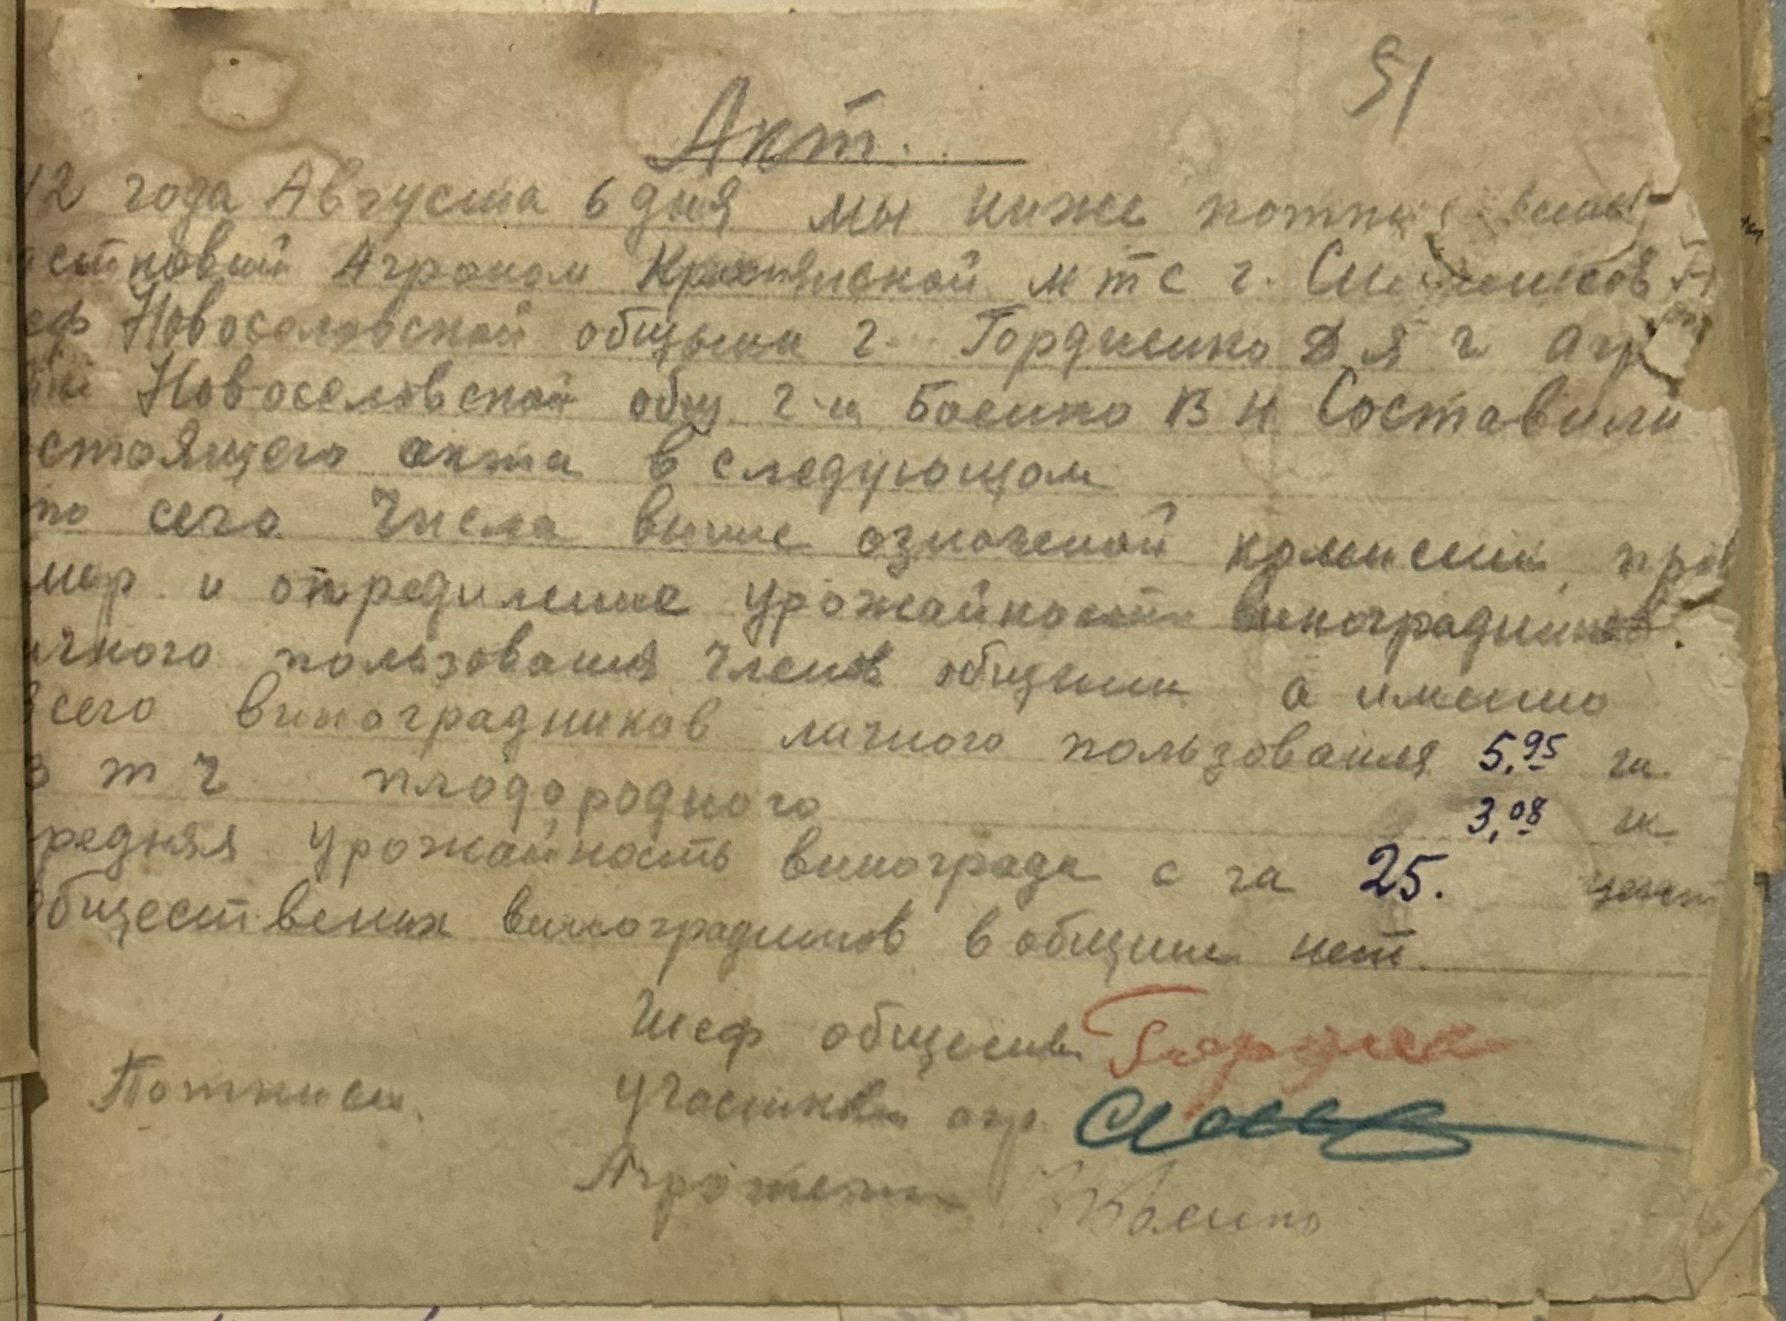 51
Акт.
42 года Августа 6 дня мы ниже
астковый Агроном МТС г.
еф Новоселовской общины г. Гордиенко Д Я г Агр
Новоселовской общ. г-н Боенко В Н Составили
стоящего акта в следующом
то сего числа выше означеной комисией пров
мер и определение урожайности виноградников.
ичного пользования членов общины а именно
всего виноградников личного пользования 5,95 га
в т ч плодородного 3,08 га
редняя урожайность винограда с га 25. цент
общественых виноградников в общине нет.
Шеф общины
Потписи. Участковый агр.
Агротехник Боенко